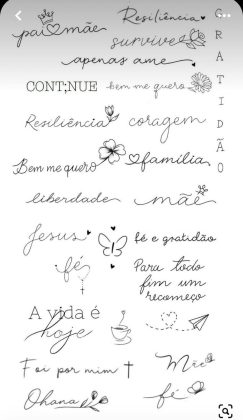 pai mãe
Resiliência
GRATIDÃO
survive
apenas ame
CONT;NUE
bem me quero
Resiliência
coragem
Bem me quero
família
liberdade
mãe
Jesus
fé e gratidão
fé
Para todo
fim um
recomeço
A vida é
hoje
Foi por mim
Mãe
Ohana
fé